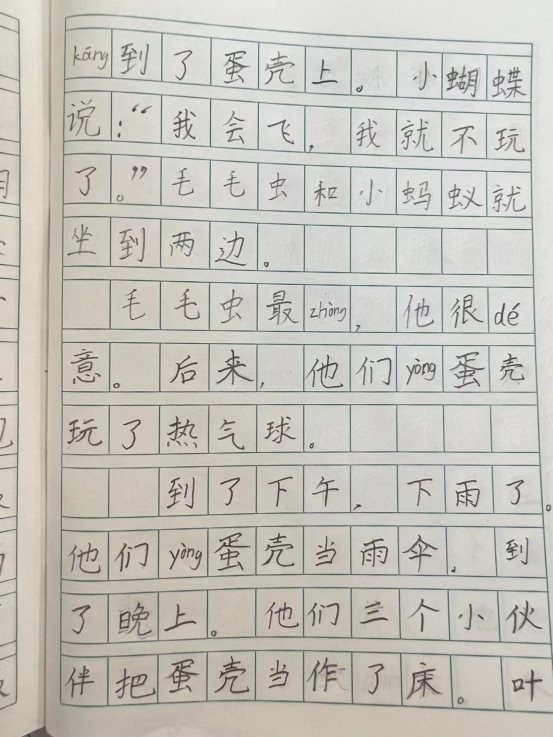 kāng到了蛋壳上。小蝴蝶
说：“我会飞，我就不玩
了。”毛毛虫和小蚂蚁就
坐到两边。
毛毛虫最zhòng，他很dé
意。后来，他们yòng蛋壳
玩了热气球。
到了下午，下雨了。
他们yòng蛋壳当雨伞，到
了晚上。他们三个小伙
伴把蛋壳当作了床。叶